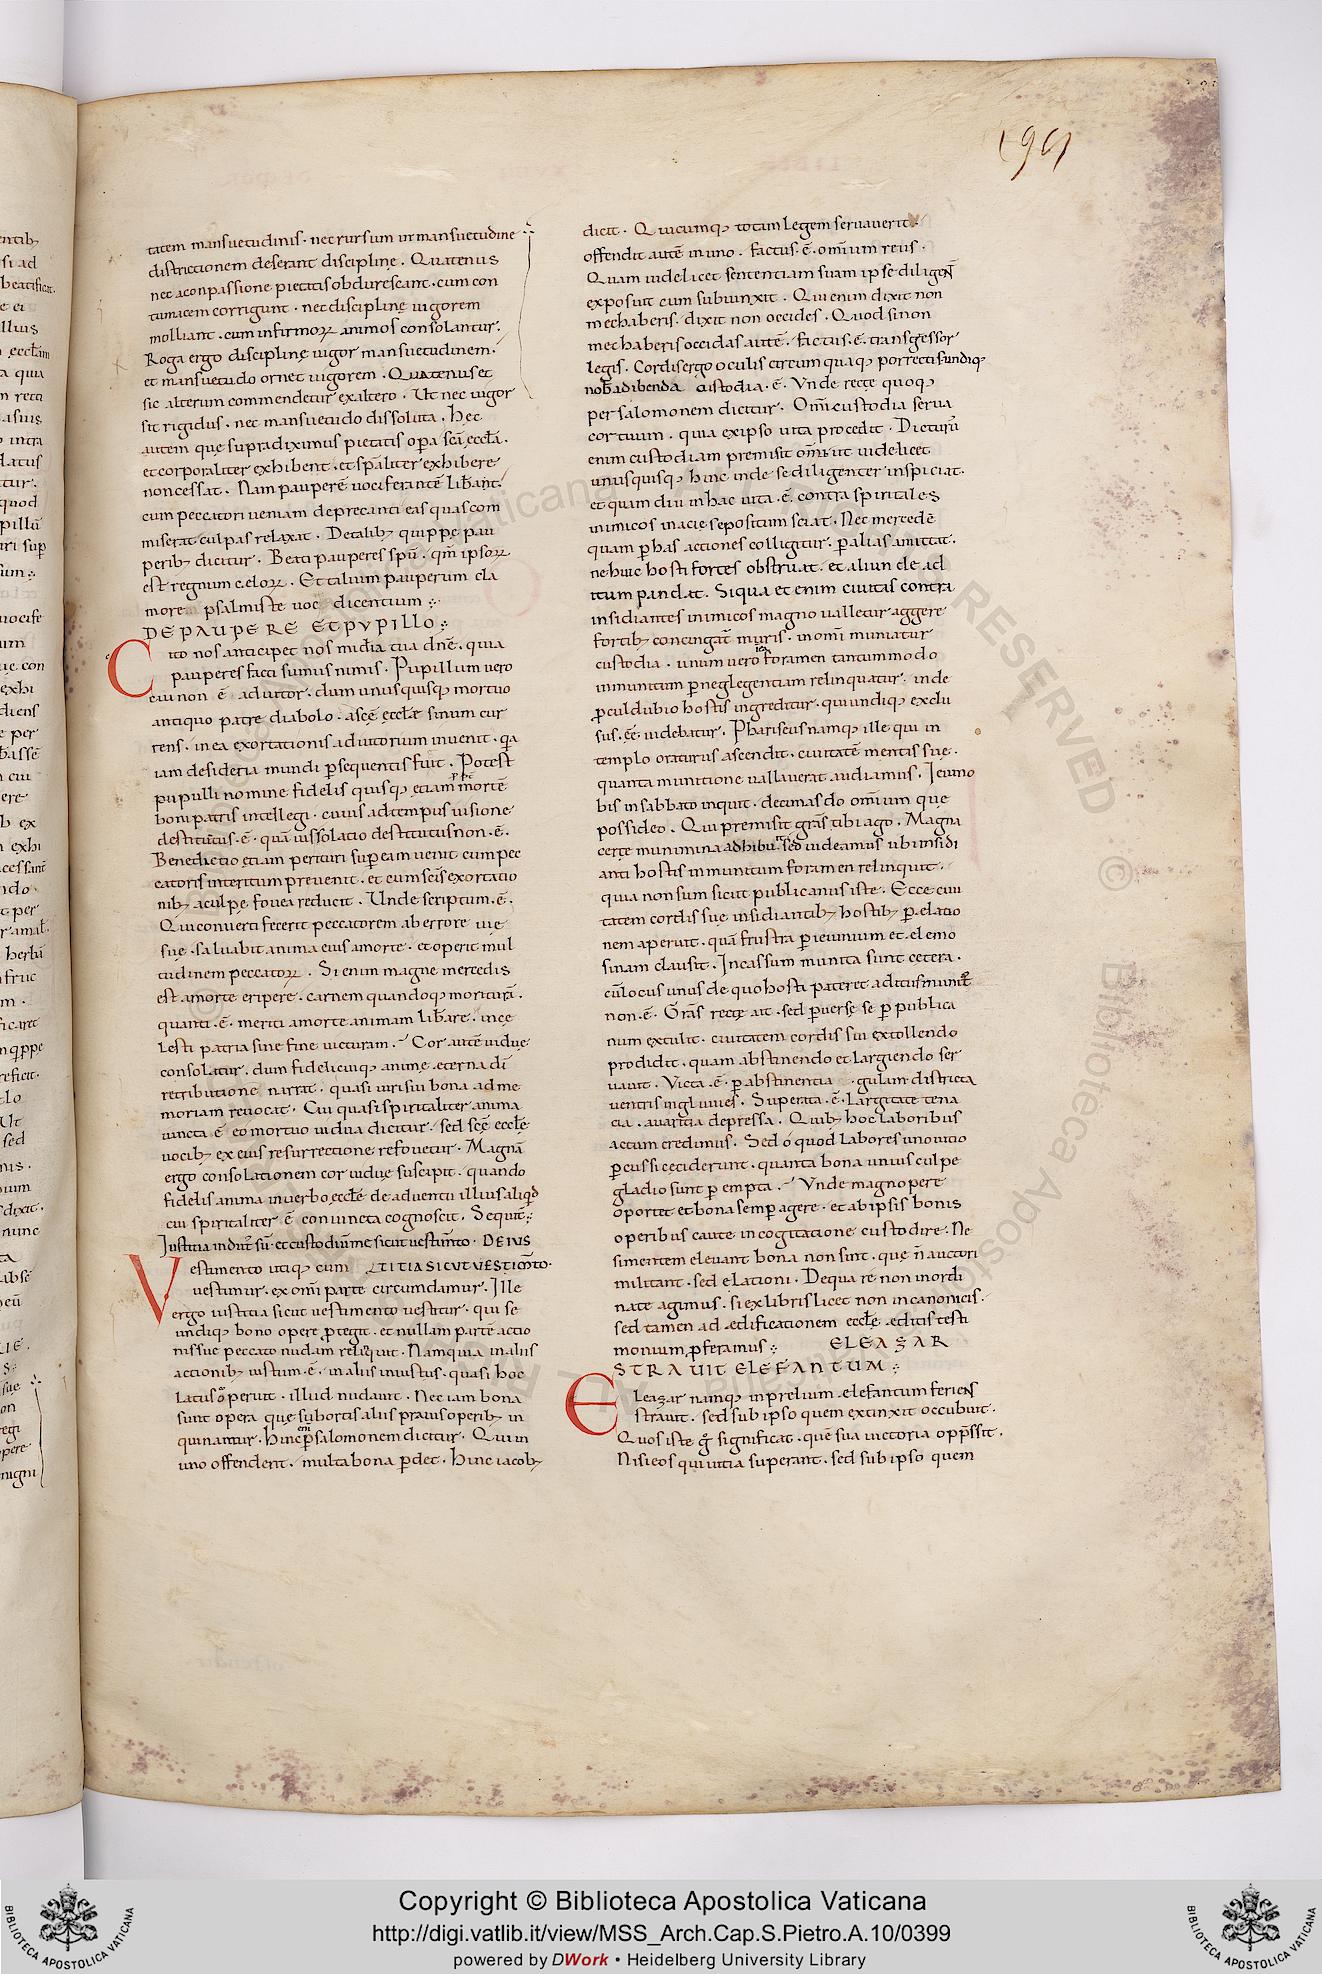 tatem mansuetudinis · nec rursum ut mansuetudine
districtionem deserant discipline . Quatenus
nec a conpassione pietatis obdurescant · cum con
tumacem corrigunt · nec discipline uigorem
molliant · cum infirmoꝝ animos consolantur ·
Roga ergo discipline uigor mansuetudinem ·
et mansuetudo ornet uigorem . Quatenus et
sic alterum commendetur ex altero . Ut nec uigor
sit rigidus · nec mansuetudo dissoluta . Hec
autem que supradiximus pietatis opa scā eccłia ·
et corporaliter exhibent · et spāliter exhibere
non cessat . Nam pauperē uociferantē liƀant
cum peccatori ueniam deprecanti eas quas com
miserat culpas relaxat . De talibꝫ quippe pau
peribꝫ dicitur . Beati pauperes spū · qm̄ ipsoꝝ
est regnum celoꝝ . Et talium pauperum cla
more psalmiste uoc dicentium
DE PAUPERE ET PVPILLO
Cito nos anticipet nos miđia tua dn̄e · quia
pauperes facti sumus nimis . Pupillum uero
cui non ē adiutor · dum unusquisqꝫ mortuo
antiquo patre diabolo · a scē ecclæ sinum cur
rens · in ea exortationis adiutorium inuenit · qa
iam desideria mundi ꝑsequentis fuit . Potest
pupilli nomine fidelis quisqꝫ etiam mortē
boni patris intellegi · cuius ad tempus uisione
destitutus · ē · quā uis solatio destitutus non · ē ·
Benedictio etiam perituri super eam uenit cum pec
catoris interitum preuenit · et eum scis exortatio
nibꝫ a culpe fouea reducit . Unde scriptum · ē ·
Qui conuerti fecerit peccatorem ab errore uie
sue · saluabit anima eius a morte · et operit mul
tudinem peccatoꝝ . Si enim magne mercedis
est a morte eripere · carnem quandoqꝫ moriturā ·
quanti · ē · meriti a morte animam liƀare · in ce
lesti patria sine fine uicturam . Cor autē uidue
consolatur · dum fidelicuiqꝫ anime eterna di
retributione narrat · quasi uiri sui bona ad me
moriam reuocat . Cui quasi spiritaliter anima
iuncta ē eo mortuo uidua dicitur · sed scē eccłe
uocibꝫ ex eius resurrectione refouetur . Magnā
ergo consolationem cor uidue suscipit · quando
fidelis anima in uerbo eccłe de aduentu illius aliqd
cui spiritaliter ē coniuncta cognoscit . Sequit
Iustitia indut sū · et custodium me sicut uestimto · DE IUS
TITIA SICUT UESTIMTO ·
Vestimento utiqꝫ cum
uestimur · ex omi parte circumdamur . Ille
ergo iustitia sicut uestimento uestitur · qui se
undiqꝫ bono opere ꝓtegit · et nullam partē actio
nis sue peccato nudam relinquit . Nam qui a in aliis
actionibꝫ iustum · ē · in aliis iniustus · quasi hoc
latus opuit · illud nudauit . Nec iam bona
sunt opera que subortis aliis prauis operibꝫ in
quinantur . Hinc ꝑ salomonem dicitur . Qui in
uno offenderit · multa bona ꝑdet . Hinc iacobꝫ
dicit . Quicumqꝫ totam legem seruauerit ·
offendit autē in uno · factus · ē · omium reus ·
Quam uidelicet sententiam suam ipse diligen
exposuit cum subiunxit . Qui enim dixit non
mechaberis · dixit non occides . Quod si non
mechaberis occidas autē · factus · ē · transgressor
legis . Cordis ergo oculis circumquaqꝫ porrectis undiqꝫ
nob adibenda custodia · ē · Unde recte quoqꝫ
per salomonem dicitur . Omi custodia serua
cor tuum · quia ex ipso uita procedit . Dicturū
enim custodiam premisit omi ut uidelicet
unusquisqꝫ hinc inde se diligenter inspiciat ·
et quam diu in hac uita · ē · contra spiritales
inimicos in acie se positum sciat . Nec mercedē
quam ꝑ has actiones colligitur · ꝑ alias amittat ·
ne huic hosti fores obstruat · et aliunde ad
itum pandat . Siqua et enim ciuitas contra
insidiantes inimicos magno ualletur aggere
fortibꝫ concingat muris · in omi muniatur
custodia · unum uero foramen tantummodo
inmunitum ꝑ neglegentiam relinquatur · inde
ꝓculdubio hostis ingreditur · qui undiqꝫ exclu
sus · ēē uidebatur . Phariseus namqꝫ ille qui in
templo oraturus ascendit · ciuitatē mentis sue ·
quanta munitione uallauerat audiamus . Ieiuno
bis in sabbato inquit · decimas do omium que
possideo . Qui premisit grās tibi ago . Magna
certe munimina adhibuit · sed uideamus ubi insidi
anti hostis inmunitum foramen relinquit ·
quia non sum sicut publicanus iste . Ecce ciui
tatem cordis sue insidiantibꝫ hostibꝫ ꝑ elatio
nem aperuit · quā frustra ꝑ ieiunium et elemo
sinam clausit . Incassum munita sunt cetera ·
cū locus unus de quo hosti pateret aditus munit
non · ē · Grās recte ait · sed ꝑuerse se ꝑ publica
num extulit · ciuitatem cordis sui extollendo
prodidit · quam abstinendo et largiendo ser
uauit . Victa · ē · ꝑ abstinentia gulam districta
uentris ingluuies . Superata · ē · largitate tena
cia · auaritia depressa . Quibꝫ hoc laboribus
actum credimus . Sed o quod labores uno uitio
ꝑcussi ceciderunt · quanta bona unius culpe
gladio sunt ꝑempta . Unde magnopere
oportet et bona semꝑ agere · et ab ipsis bonis
operibus caute in cogitacione custodire · Ne
si mentem eleuant bona non sint · que n̄ auctori
militant · sed elationi . De qua re non inordi
nate agimus · si ex libris licet non in canonicis ·
sed tamen ad edificationem eccłe · editis testi
monium ꝓferamus
ELEAZAR
STRAUIT ELEFANTUM
Eleazar namqꝫ in prelium elefantum feriens
strauit · sed sub ipso quem extinxit occubuit ·
Quos iste g̊ significat · quē sua uictoria oppressit ·
Nisi eos qui uitia superant · sed sub ipso quem
Copyright © Biblioteca Apostolica Vaticana
http://digi.vatlib.it/view/MSS_Arch.Cap.S.Pietro.A.10/0399
powered by DWork • Heidelberg University Library
BIBLIOTECA APOSTOLICA VATICANA
BIBLIOTECA APOSTOLICA VATICANA